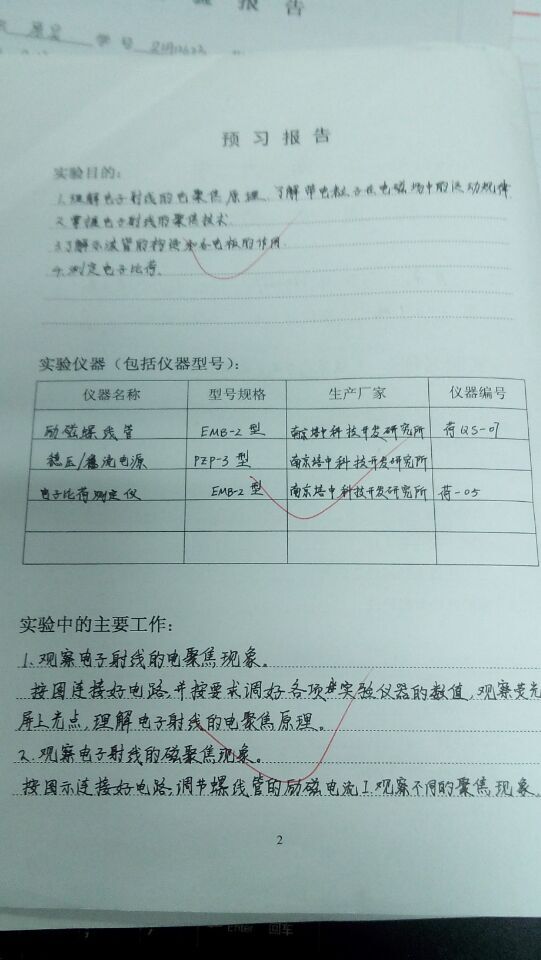 报告
学号
预习报告
实验目的：
1.理解电子射线的电聚焦原理，了解带电粒子在电磁场中的运动规律
2.掌握电子射线的聚焦技术
3.了解示波管的构造和各电极的作用
4.测定电子比荷。
实验仪器（包括仪器型号）：
仪器名称 型号规格 生产厂家 仪器编号
励磁螺线管 EMB-2型 南京培中科技开发研究所 荷QS-07
稳压/稳流电源 PZP-3型 南京培中科技开发研究所
电子比荷测定仪 EMB-2型 南京培中科技开发研究所 荷-05
实验中的主要工作：
1.观察电子射线的电聚焦现象。
按图连接好电路，并按要求调好各项实验仪器的数值，观察荧光
屏上光点，理解电子射线的电聚焦原理。
2.观察电子射线的磁聚焦现象。
按图示连接好电路，调节螺线管的励磁电流I，观察不同的聚焦现象。
2